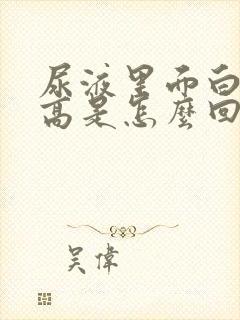 尿液里而白
高是怎麼回
吴偉